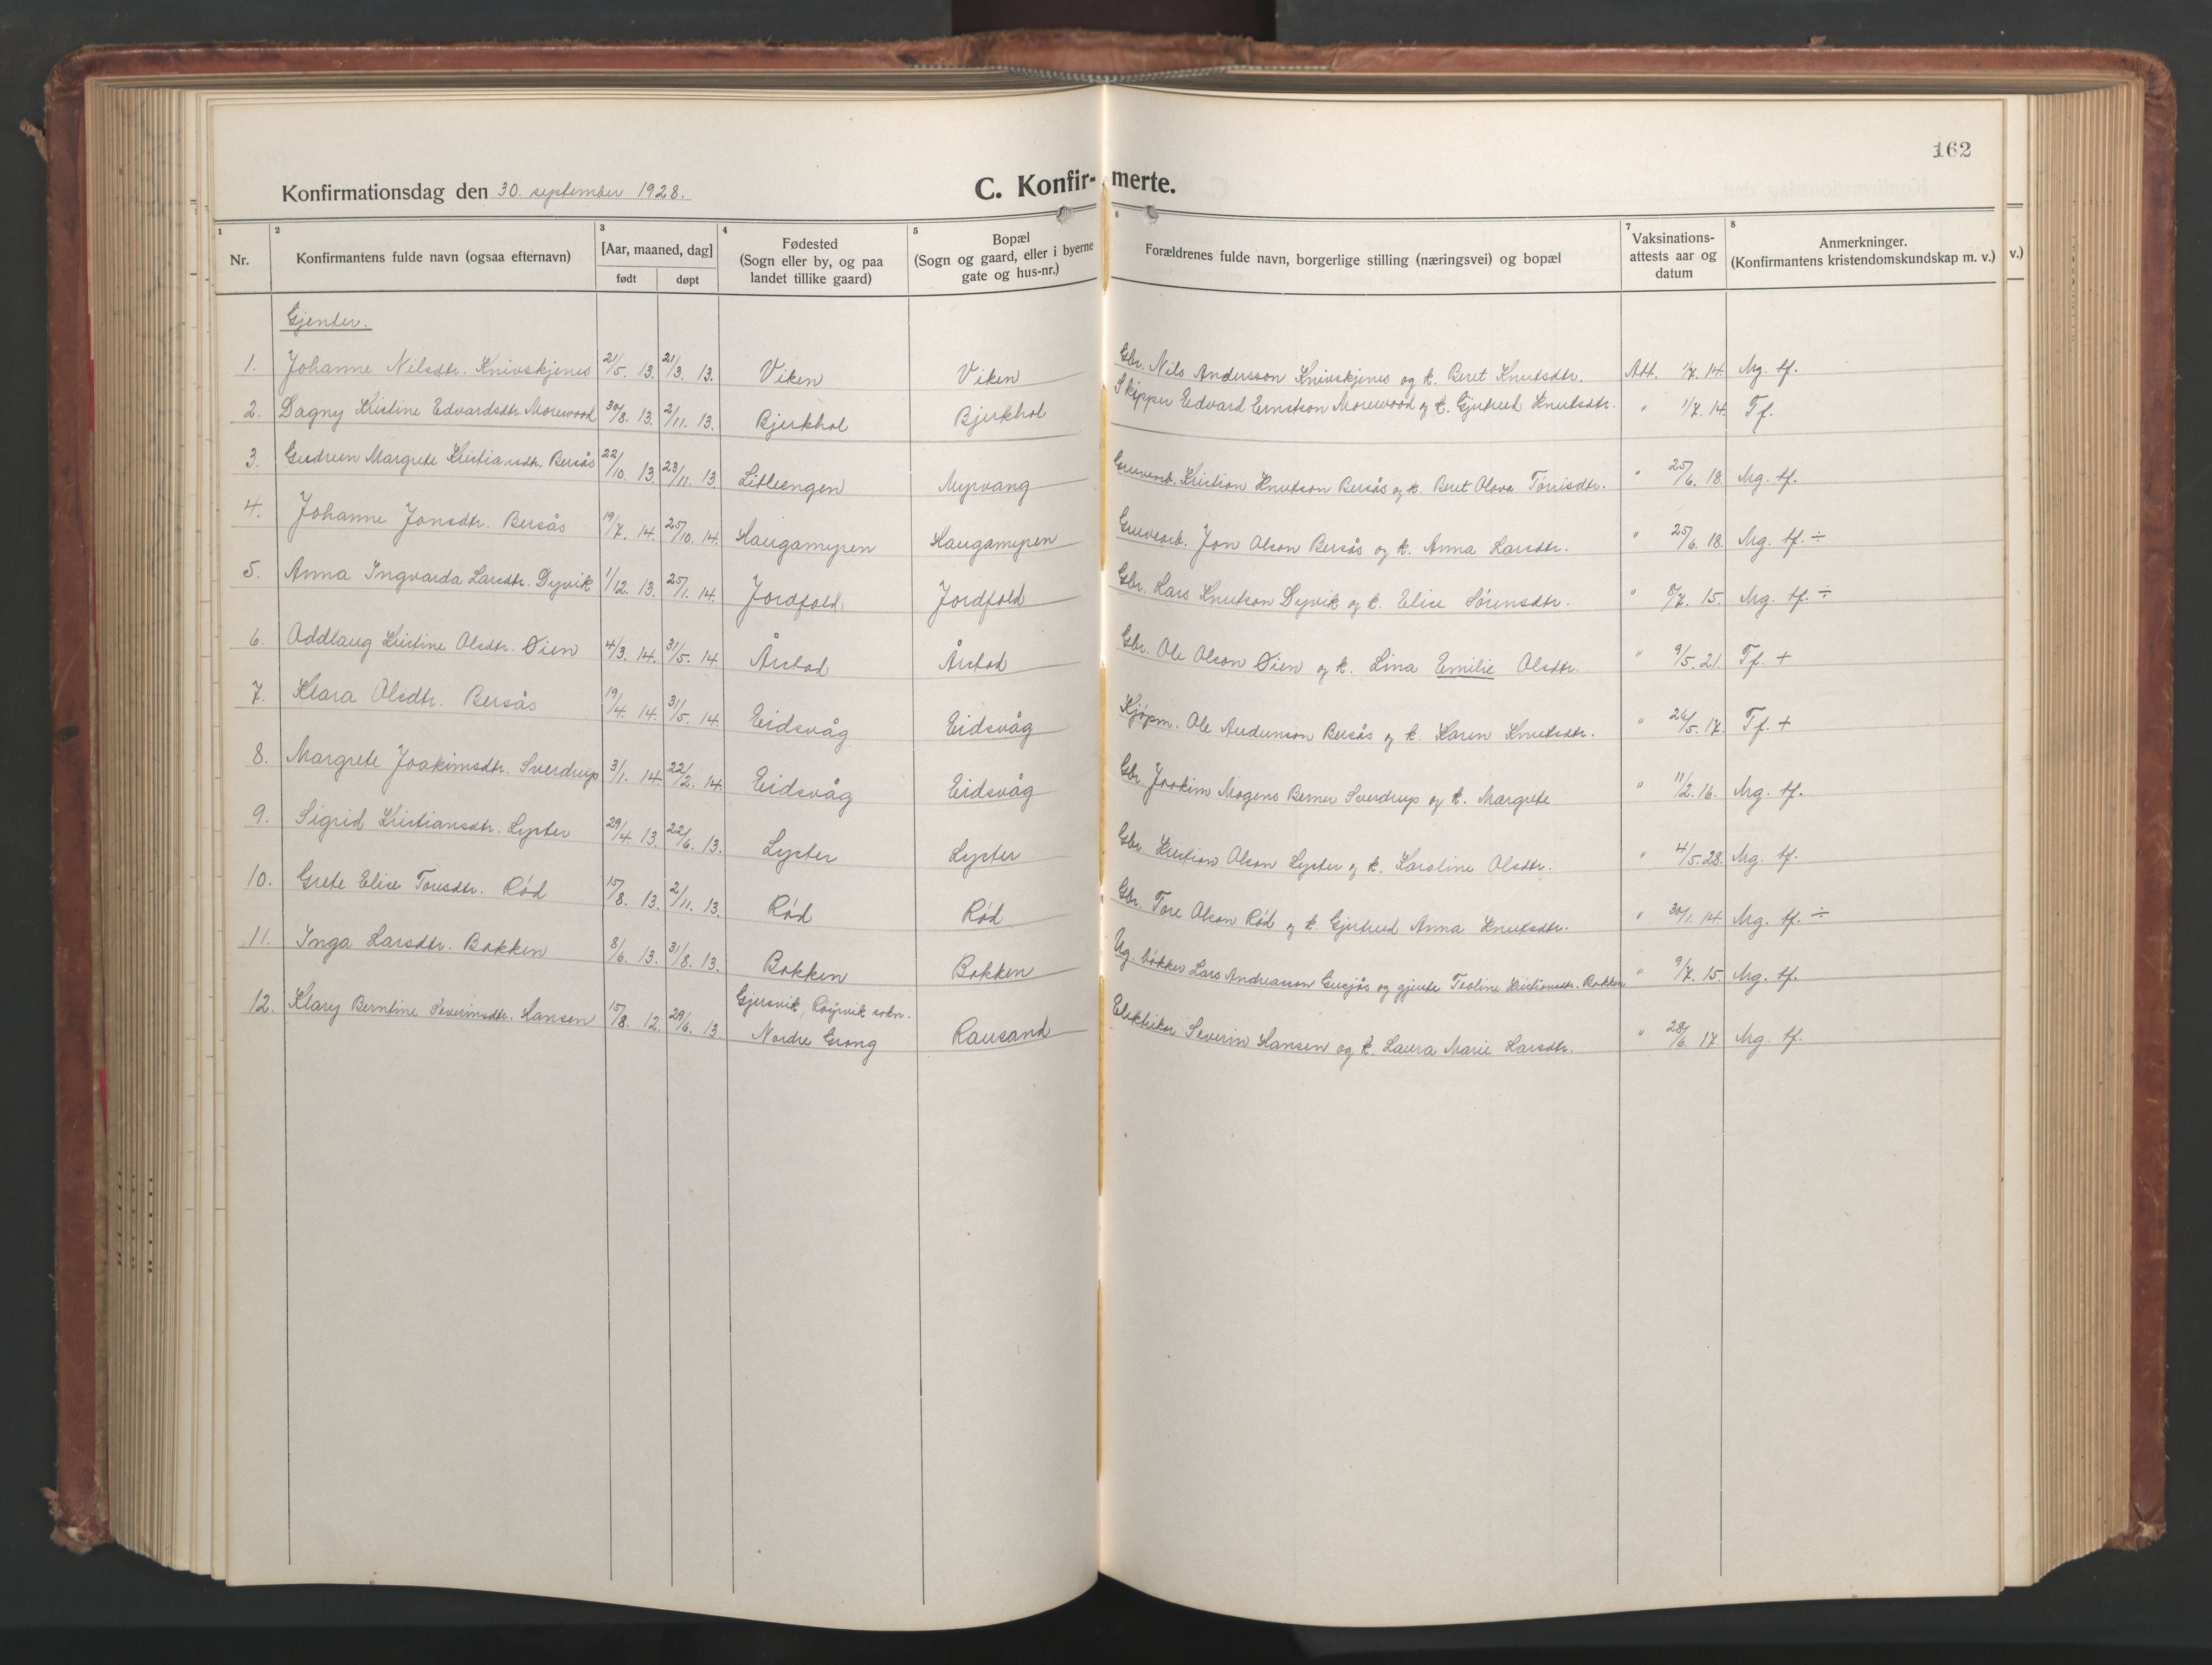 162
Konfirmationsdag den 30. september 1928.
C. Konfir- merte.
1 2 3 4 5 6 7 8
Nr. Konfirmantens fulde navn (ogsaa efternavn) [Aar, maaned, dag] født døpt Fødested (Sogn eller by, og paa landet tillike gaard) Bopæl (Sogn og gaard, eller i byerne gate og hus-nr.) Forældrenes fulde navn, borgerlige stilling (næringsvei) og bopæl Vaksinations-attests aar og datum Anmerkninger. (Konfirmantens kristendomskundskap m. v.) v.)
Gjenter.
1. Johanne Nilsdtr. Knivskjenes 21/5. 13. 21/3. 13. Viken Viken Gbr. Nils Andersson Knivskjenes og k. Beret Knutsdtr. Att. 1/7. 14. Mg. tf.
2. Dagny Kristine Edvardsdtr. Morewood 30/8. 13. 2/11. 13. Bjerkhol Bjerkhol Skipper Edvard Ernstson Morewood og k. Gjertrud Knutsdtr. " 1/7. 14. Tf.
3. Gudrun Margrete Kristiansdtr. Bersås 22/10. 13. 23/11. 13. Litleengen Myrvang Gruvearb. Kristian Knutson Bersås og k. Beret Olava Tørrisdtr. " 25/6. 18. Mg. tf.
4. Johanne Jonsdtr. Bersås 19/7. 14. 25/10. 14. Haugamyren Haugamyren Gruvearb. Jon Olson Bersås og k. Anna Larsdtr. " 25/6. 18. Mg. tf. ÷
5. Anna Ingvarda Larsdtr. Dyvik 1/12. 13. 25/1. 14. Jordfald Jordfald Gbr. Lars Knutson Dyvik og k. Elise Sørensdtr. " 8/7. 15. Mg. tf. ÷
6. Oddlaug Kristine Olsdtr. Øien 4/3. 14. 31/5. 14. Årstad Årstad Gbr. Ole Olson Øien og k. Lina Emilie Olsdtr. " 9/5. 21. Tf. +
7. Klara Olsdtr. Bersås 19/4. 14. 31/5. 14. Eidsvåg Eidsvåg Kjøpm. Ole Anderson Bersås og k. Karen Knutsdtr. " 26/5. 17. Tf. +
8. Margrete Joakimsdtr. Sverdrup 3/1. 14. 22/2. 14. Eidsvåg Eidsvåg Gbr. Joakim Mogens Berner Sverdrup og k. Margrete " 11/2. 16. Mg. tf.
9. Sigrid Kristiansdtr. Lyster 29/4. 13. 22/6. 13. Lyster Lyster Gbr. Kristian Olson Lyster og k. Karoline Olsdtr. " 4/5. 28. Mg. tf.
10. Grete Elise Toresdtr. Rød 15/8. 13. 2/11. 13. Rød Rød Gbr. Tore Olson Rød og k. Gjertrud Anna Knutsdtr. " 30/1. 14. Mg. tf. ÷
11. Inga Larsdtr. Bakken 8/6. 13. 31/8. 13. Bakken Bakken Ug. bøkker Lars Andreasson Gusjås og gjente Teoline Kristiansdtr. Bakken " 9/7. 15. Mg. tf.
12. Klary Berntine Severinsdtr. Hansen 15/8. 12. 29/6. 13. Gjersvik, Røyrvik sokn. Nordre Grong Rausand Elektriker Severin Hansen og k. Laura Marie Larsdtr. " 28/6. 17. Mg. tf.